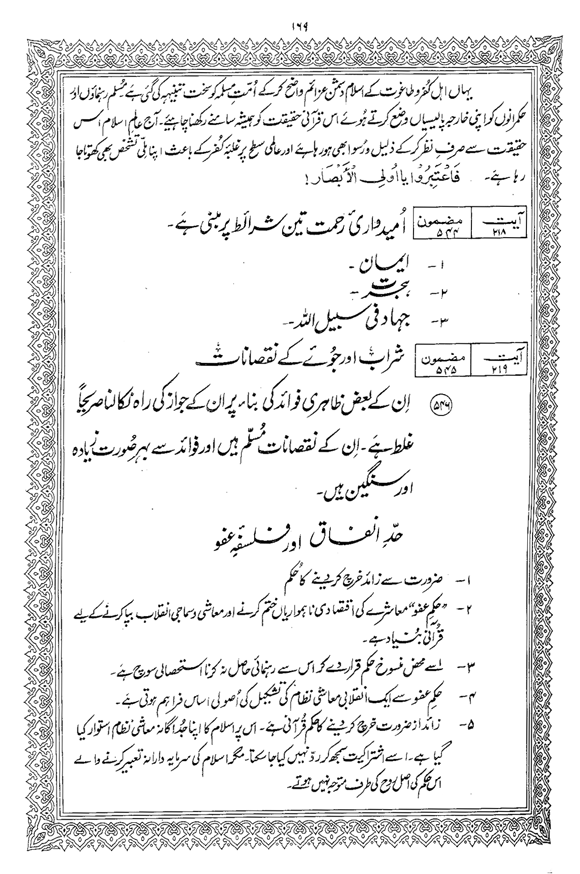 ۱۶۹
یہاں اہل کفر و طاغوت کے اسلام دشمن عزائم واضح کر کے اُمتِ مسلمہ کو سخت تنبیہہ کی گئی ہے مُسلم رہنماؤں اور
حکمرانوں کو اپنی خارجہ پالیسیاں وضع کرتے ہُوئے اس قرآنی حقیقت کو ہمیشہ سامنے رکھنا چاہیئے۔ آج عالمِ اسلام اس
حقیقت سے صرفِ نظر کر کے ذلیل و رُسوا بھی ہو رہا ہے اور عالمی سطح پر غلبۂ کفر کے باعث اپنا ملی تشخص بھی کھوتا جا
رہا ہے۔ فَاعْتَبِرُوا یا اُولِی الْاَبْصَار!
آیت ۲۱۸ مضمون ۵۴۴ اُمیدواریٔ رحمت تین شرائط پر مبنی ہے۔
۱۔ ایمان۔
۲۔ ہجرت۔
۳۔ جہاد فی سبیل اللہ۔
آیت ۲۱۹ مضمون ۵۴۵ شراب اور جوئے کے نقصانات
۵۴۶ اِن کے بعض ظاہری فوائد کی بناء پر ان کے جواز کی راہ نکالنا صریحاً
غلط ہے۔ اِن کے نقصانات مُسلّم ہیں اور فوائد سے بہر صُورت زیادہ
اور سنگین ہیں۔
حدِّ انفاق اور فلسفۂ عفو
۱۔ ضرورت سے زائد خرچ کر دینے کا حُکم
۲۔ "حکمِ عفو" معاشرے کی اقتصادی ناہمواریاں ختم کرنے اور معاشی و سماجی انقلاب بپا کرنے کے لیے
قُرآنی بُنیاد ہے۔
۳۔ اسے محض منسوخ حکم قرار دے کر اس سے رہنمائی حاصل نہ کرنا استحصالی سوچ ہے۔
۴۔ حکمِ عفو سے ایک انقلابی معاشی نظام کی تشکیل کی اُصولی اساس فراہم ہوتی ہے۔
۵۔ زائد از ضرورت خرچ کر دینے کا حکم قُرآنی ہے۔ اس پر اسلام کا اپنا جُداگانہ معاشی نظام استوار کیا
گیا ہے۔ اسے اشتراکیت سمجھ کر ردّ نہیں کیا جا سکتا۔ مگر اسلام کی سرمایہ دارانہ تعبیر کرنے والے
اس حکم کی اصل رُوح کی طرف متوجہ نہیں ہوتے۔